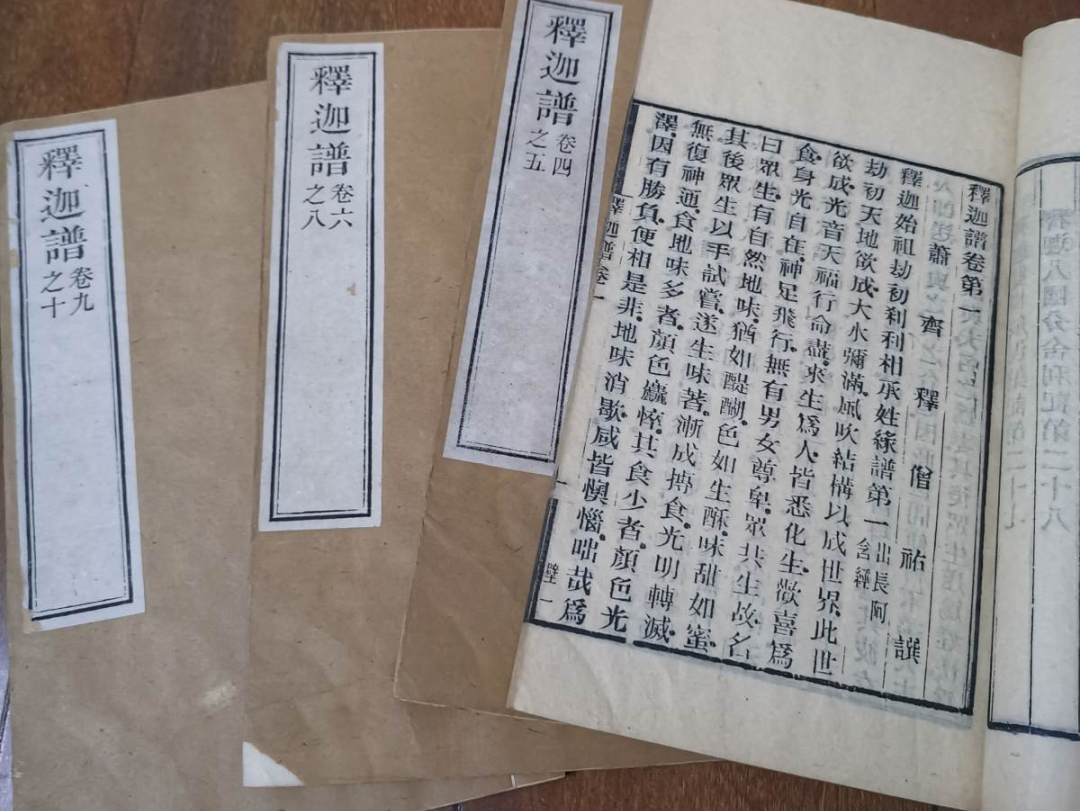 釋迦譜卷第一
蕭齊釋僧祐譔
釋迦始祖劫初剎利相承姓緣譜第一出長阿
含經
劫初天地欲成大水彌滿.風吹結構以成世界.此世
欲成.光音天福行命盡.來生爲人.皆悉化生.歡喜爲
食.身光自在.神足飛行.無有男女尊卑.眾共生故.名
曰眾生.有自然地味.猶如醍醐.色如生酥.味甜如蜜.
其後眾生以手試嘗.遂生味著.漸成摶食.光明轉滅.
無復神通.食地味多者.顏色麤悴.其食少者.顏色光
澤.因有勝負.便相是非.地味消歇.咸皆懊惱.咄哉爲
釋迦譜卷一
釋迦譜
卷四
之五
釋迦譜
卷六
之八
釋迦譜
卷九
之十